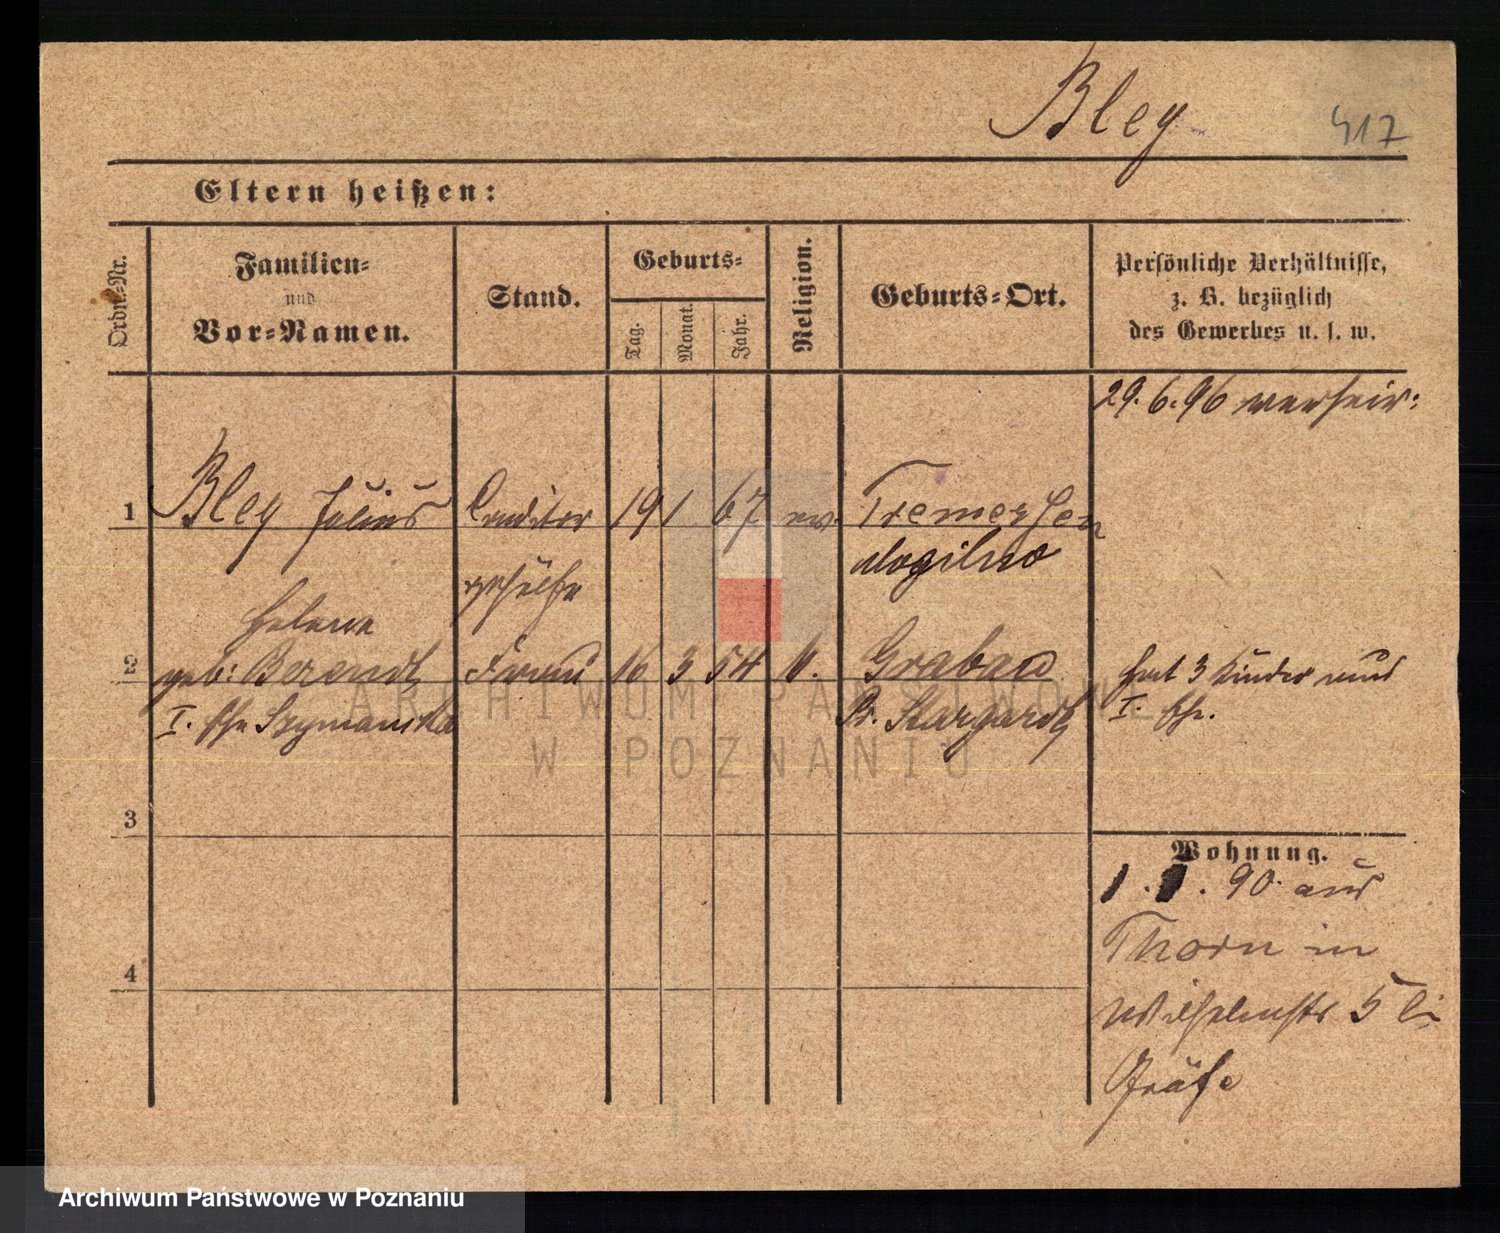 Bley 417
Eltern heißen:
Ordn.-Nr.
Familien-
und
Vor-Namen.
Stand.
Geburts-
Tag.
Monat.
Jahr.
Religion.
Geburts-Ort.
Persönliche Verhältnisse,
z. B. bezüglich
des Gewerbes u. s. w.
29.6.96 verheir:
1 Bley Julius Conditor 19 1 67 ev. Tremessen
gehülfe Mogilno
Helene
2 geb: Berendt Frau 16 3 54 k. Grabau hat 3 Kinder aus
I. Ehe Szymanska Pr. Stargardt I. Ehe.
3
Wohnung.
1. . 90. aus
Thorn in
4
Wilhelmstr 5 bei
Gräfe
ARCHIWUM PAŃSTWOWE
W POZNANIU
Archiwum Państwowe w Poznaniu